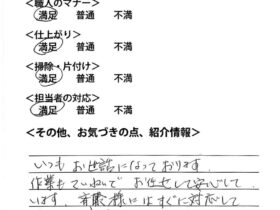 <職人のマナー>
満足 普通 不満
<仕上がり>
満足 普通 不満
<掃除・片付け>
満足 普通 不満
<担当者の対応>
満足 普通 不満
<その他、お気づきの点、紹介情報>
いつもお世話になっております。
作業もていねいでお任せして安心して
います。斉藤様にはすぐに対応して